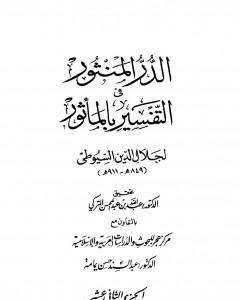 الدر المنثور
في
التفسير بالمأثور
لجلال الدين السيوطي
(٨٤٩هـ - ٩١١هـ)
تحقيق
الدكتور عبد الله بن عبد المحسن التركي
بالتعاون مع
مركز هجر للبحوث والدراسات العربية والإسلامية
الدكتور عبد السند حسن يمامة
الجزء الثاني عشر